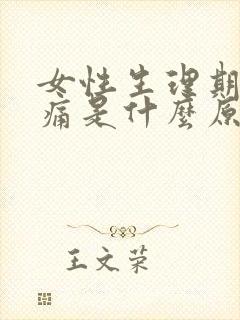 女性生理期
痛是什麼原
王文荣